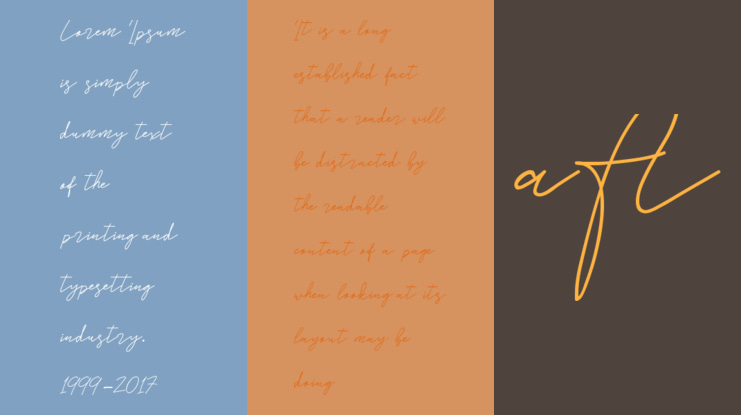 Lorem Ipsum
is simply
dummy text
of the
printing and
typesetting
industry.
1999-2017
It is a long
established fact
that a reader will
be distracted by
the readable
content of a page
when looking at its
layout may be
doing
aft